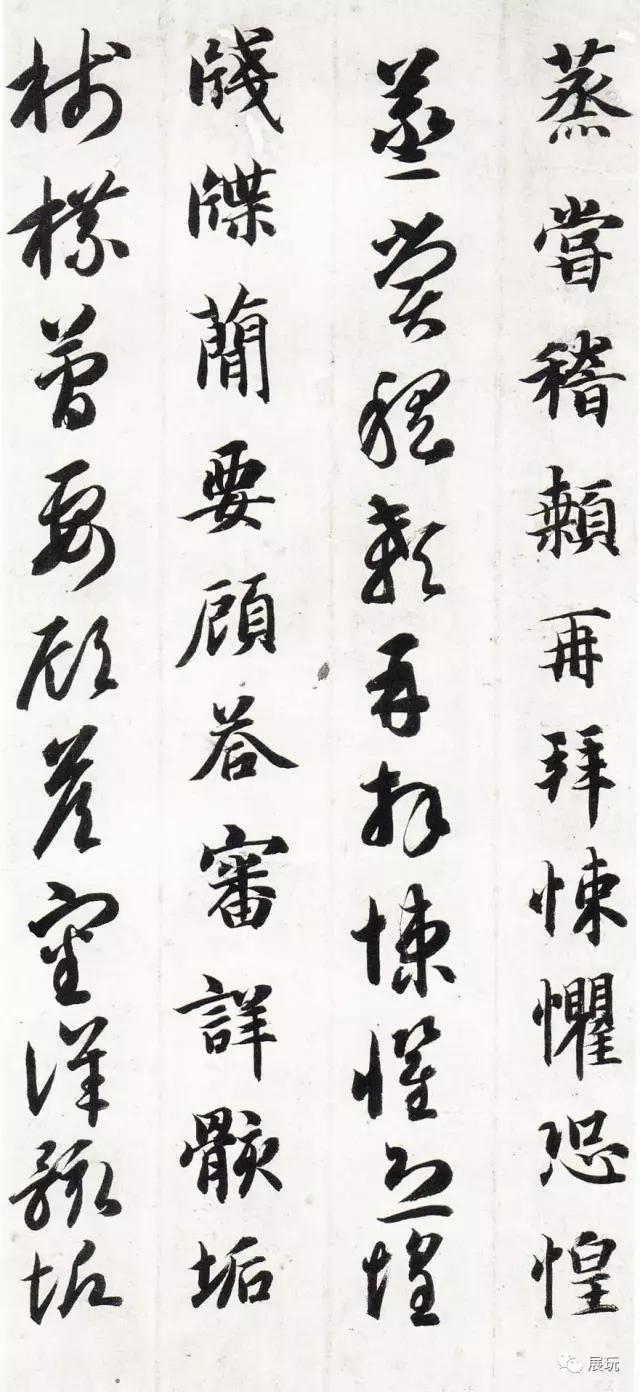 蒸嘗稽顙再拜悚懼恐惶
蒸嘗稽顙再拜悚懼恐惶
牋牒簡要顧荅審詳骸垢
牋牒簡要顧荅審詳骸垢
展玩